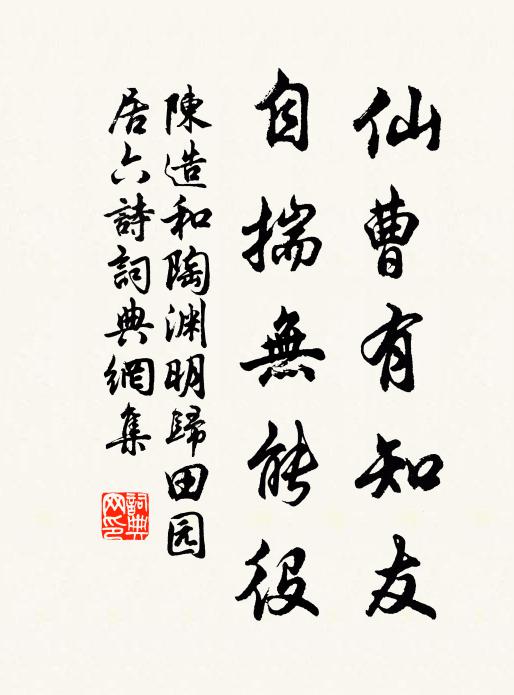 仙曹有知友
自揣無能役
陳造和陶渊明歸田园
居六詩詞典網集
詞典网印